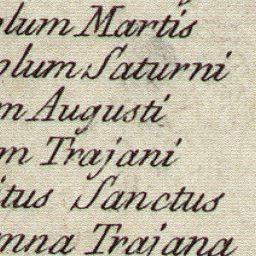 olum Martis
olum Saturni
m Augusti
m Trajani
itus Sanctus
mna Trajana